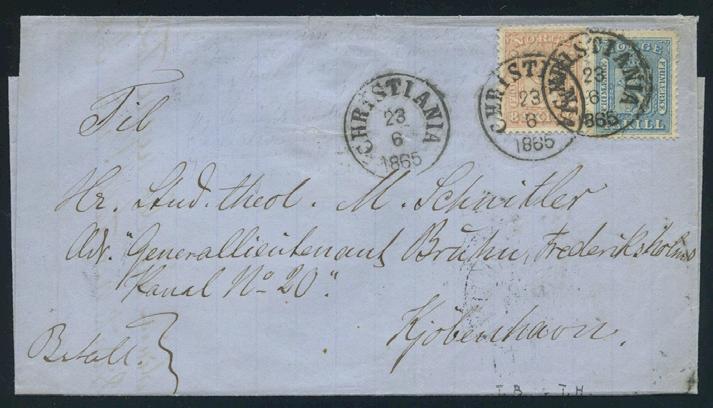 NORGE
CHRISTIANIA
23
6
1865
CHRISTIANIA
23
6
1865
CHRISTIANIA
23
6
1865
FRIMÆRKE
SKILL
Til
Hr. Stud. theol. M. Schnitler
Adr. "Generallieutenant Bruhn, Frederiksholms
Kanal No 20".
Kjöbenhavn.
Betalt.
T.B. T.H.